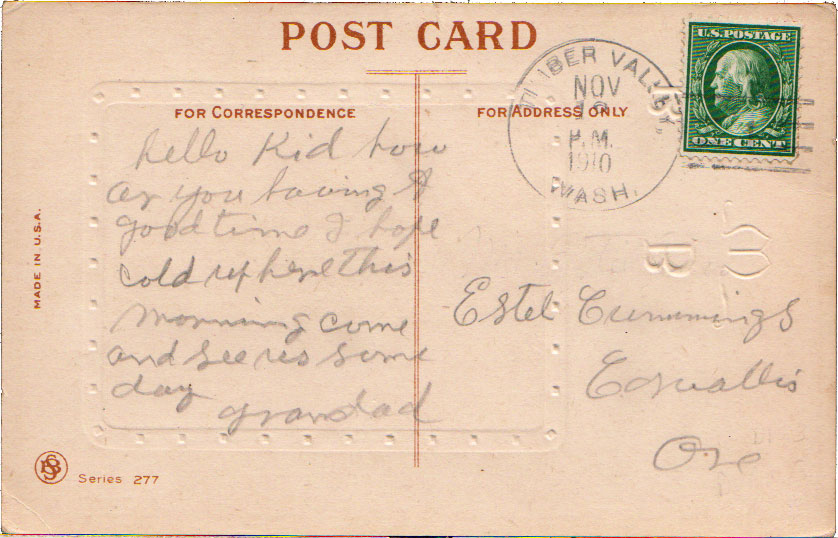 POST CARD
FOR CORRESPONDENCE
FOR ADDRESS ONLY
U.S. POSTAGE
ONE CENT
TIMBER VALLEY
NOV
P.M.
1910
WASH.
hello Kid how
ar you having A
good time I hope
cold up here this
morning come
and see us some
day
grandad
Estel Cummings
Corvallis
Ore
MADE IN U.S.A.
Series 277